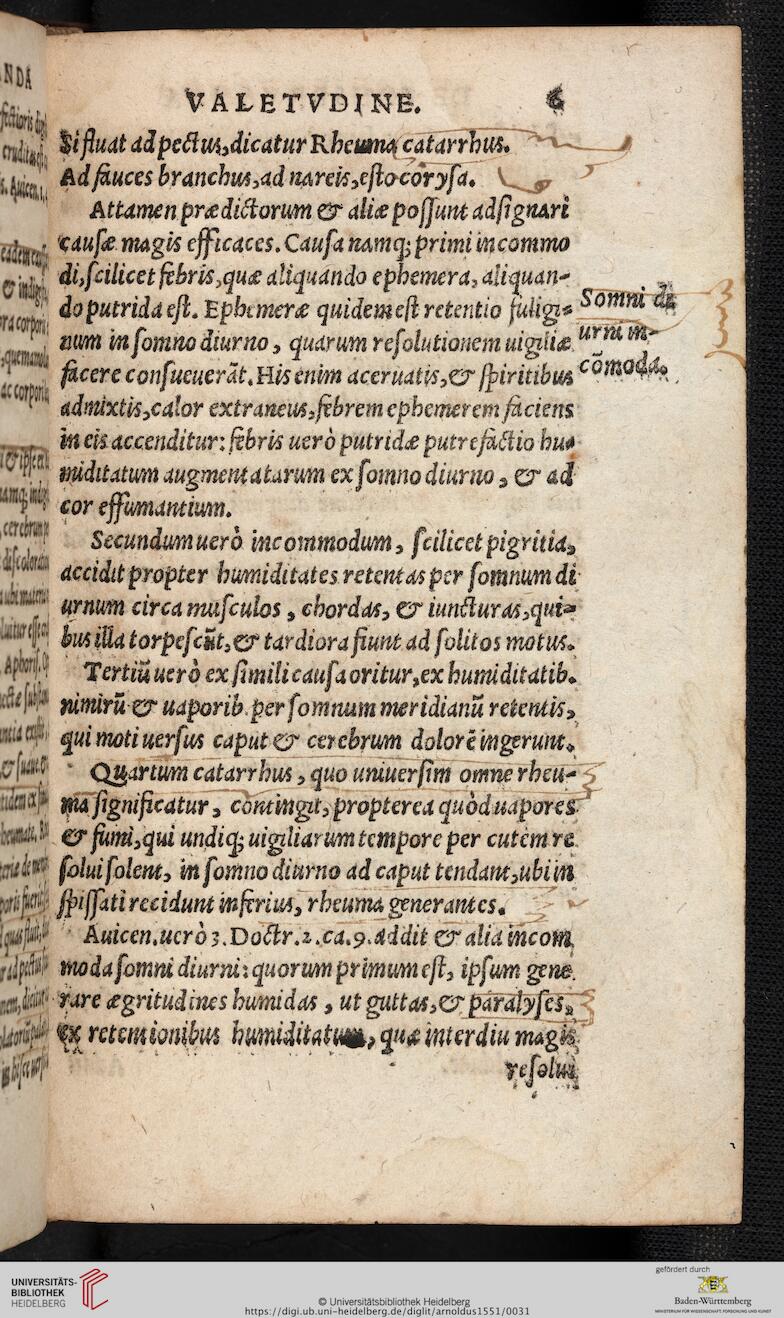 VALETVDINE. 6
Si fluat ad pectus, dicatur Rheuma catarrhus.
Ad fauces branchus, ad nareis, esto corysa.
Attamen prædictorum & aliæ possunt adsignari
causæ magis efficaces. Causa namq; primi incommo
di, scilicet febris, quæ aliquando ephemera, aliquan-
do putrida est. Ephemeræ quidem est retentio fuligi-
num in somno diurno, quarum resolutionem uigiliæ
facere consueuerāt. His enim aceruatis, & spiritibus
admixtis, calor extraneus, febrem ephemerem faciens
in eis accenditur: febris uerò putridæ putrefactio hu-
miditatum augmentatarum ex somno diurno, & ad
cor effumantium.
Somni di
urni in-
cōmoda.
Secundum uerò incommodum, scilicet pigritia,
accidit propter humiditates retentas per somnum di
urnum circa musculos, chordas, & iuncturas, qui-
bus illa torpescūt, & tardiora fiunt ad solitos motus.
Tertiū uerò ex simili causa oritur, ex humiditatib.
nimirū & uaporib. per somnum meridianū retentis,
qui moti uersus caput & cerebrum dolorē ingerunt.
Quartum catarrhus, quo uniuersim omne rheu-
ma significatur, contingit, propterea quòd uapores
& fumi, qui undiq; uigiliarum tempore per cutem re
solui solent, in somno diurno ad caput tendant, ubi in
spissati recidunt inferius, rheuma generantes.
Auicen. uerò 3. Doctr. 2. ca. 9. addit & alia incom
moda somni diurni: quorum primum est, ipsum gene
rare ægritudines humidas, ut guttas, & paralyses,
ex retentionibus humiditatum, quæ interdiu magis
resolui
UNIVERSITÄTS-
BIBLIOTHEK
HEIDELBERG
© Universitätsbibliothek Heidelberg
https://digi.ub.uni-heidelberg.de/diglit/arnoldus1551/0031
gefördert durch
Baden-Württemberg
MINISTERIUM FÜR WISSENSCHAFT, FORSCHUNG UND KUNST